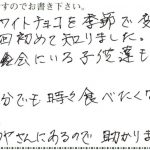 すのでお書き下さい。
ワイトチョコを季節で変
回初めて知りました。
会にいる子供達も
分でも時々食べたく
やさんにあるので助かりま